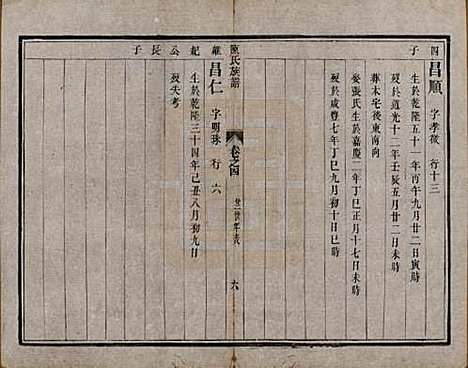 四子
昌順 字孝徵 行十三
生於乾隆五十一年丙午九月廿二日寅時
歿於道光十二年壬辰五月廿二日未時
葬本宅後東南向
娶張氏生於嘉慶二年丁巳正月十七日巳時
歿於咸豐七年丁巳九月初十日巳時
陳氏族譜
卷之四
六
維紀公長子
昌仁 字明珠 行六
生於乾隆三十四年己丑八月初九日
歿失考